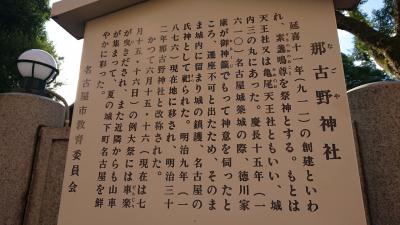 なごや
那古野神社
延喜十一年（九一一）の創建といわ
れ、素盞鳴尊を祭神とする。もとは
天王社、亀尾天王社ともいい、城
内三の丸にあった。慶長十五年（一
六一〇）名古屋城築城の際、徳川家
康が御神籤でもって神意を伺ったと
ころ、遷座不可と出たため、そのま
ま城内に留まり城の鎮護、名古屋の
氏神として祀られた。明治九年（一
八七六）現在地に移され、明治三十
二年那古野神社と改称された。
かつて六月十五・十六（現在は七
月十五・十六日）の例大祭には車楽
が曳きだされ、また近隣からも山車
が集まって、夏の城下町名古屋を鮮
やかに彩った。
名古屋市教育委員会